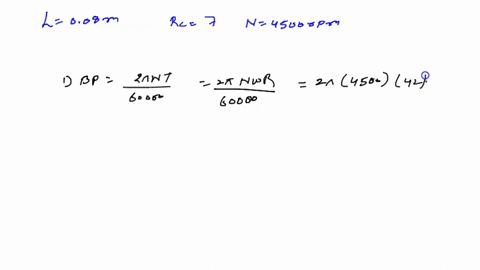 L = 0.08m Rc = 7 N = 4500rpm
1) BP = 2πNT/60000 = 2πNWR/60000 = 2π (4500) (42)